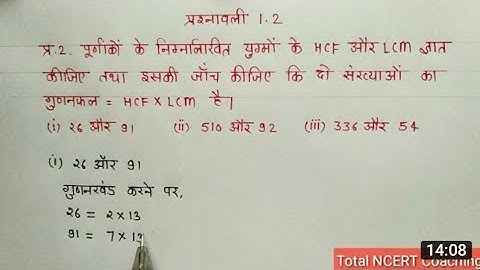 प्रश्नावली 1.2
प्र.2. पूर्णांकों के निम्नलिखित युग्मों के HCF और LCM ज्ञात
कीजिए तथा इसकी जाँच कीजिए कि दो संख्याओं का
गुणनफल = HCF X LCM है।
(i) 26 और 91 (ii) 510 और 92 (iii) 336 और 54
(i) 26 और 91
गुणनखंड करने पर,
26 = 2 x 13
91 = 7 x 13
Total NCERT Coaching
14:08